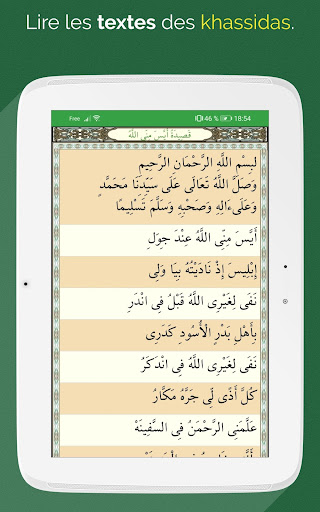 Lire les textes des khassidas.
Free 46 % 18:54
قَصِيدَةُ أَيَّسَ مِنِّى اللَّهُ
لبِسْمِ اللَّهِ الرَّحْمَانِ الرَّحِيمِ
وَصَلَّ اللَّهُ تَعَالَى عَلَى سَيِّدِنَا مَحَمَّدٍ
وَعَلَى ءَالِهِ وَصَحْبِهِ وَسَلَّمَ تَسْلِيمًا
أَيَّسَ مِنِّى اللَّهُ عِنْدَ جوَلِ
إِبْلِيسَ إِذْ نَادَيْتُهُ بِيَا وَلِى
نَفَى لِغَيْرِى اللَّهُ قَبْلُ فِى انْدَرِ
بِأَهْلِ بَدْرٍ الْأُسُودِ كَدَرِى
نَفَى لِغَيْرِى اللَّهُ فِى انْدَكَرُ
كُلَّ أَذًى لِى جَرَّهُ مَكَّارُ
عَلَّمَنِى الرَّحْمَنُ فِى السَّفِينَهْ